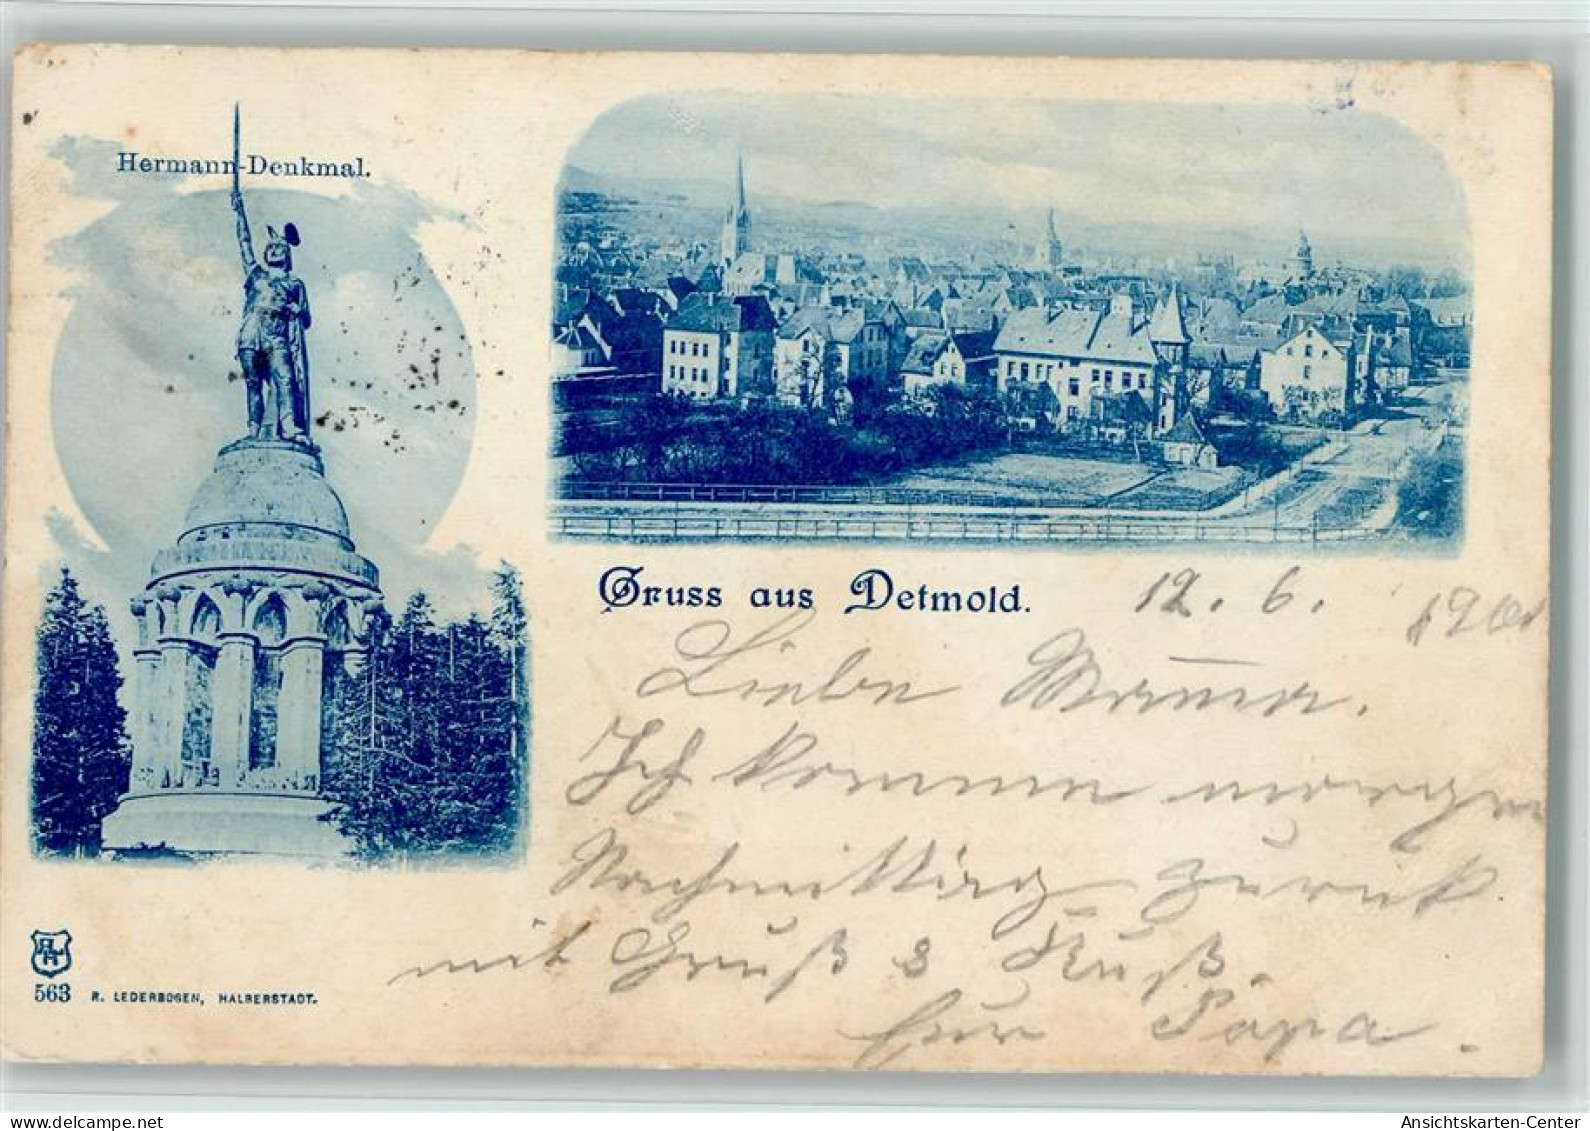 Hermann-Denkmal.
Gruss aus Detmold.
12. 6. 1901
Liebe Mama.
Ich komme morgen
Nachmittag zurück
mit Gruß & Kuß.
Papa.
563 R. LEDERBOGEN, HALBERSTADT.
Ansichtskarten-Center
www.delcampe.net